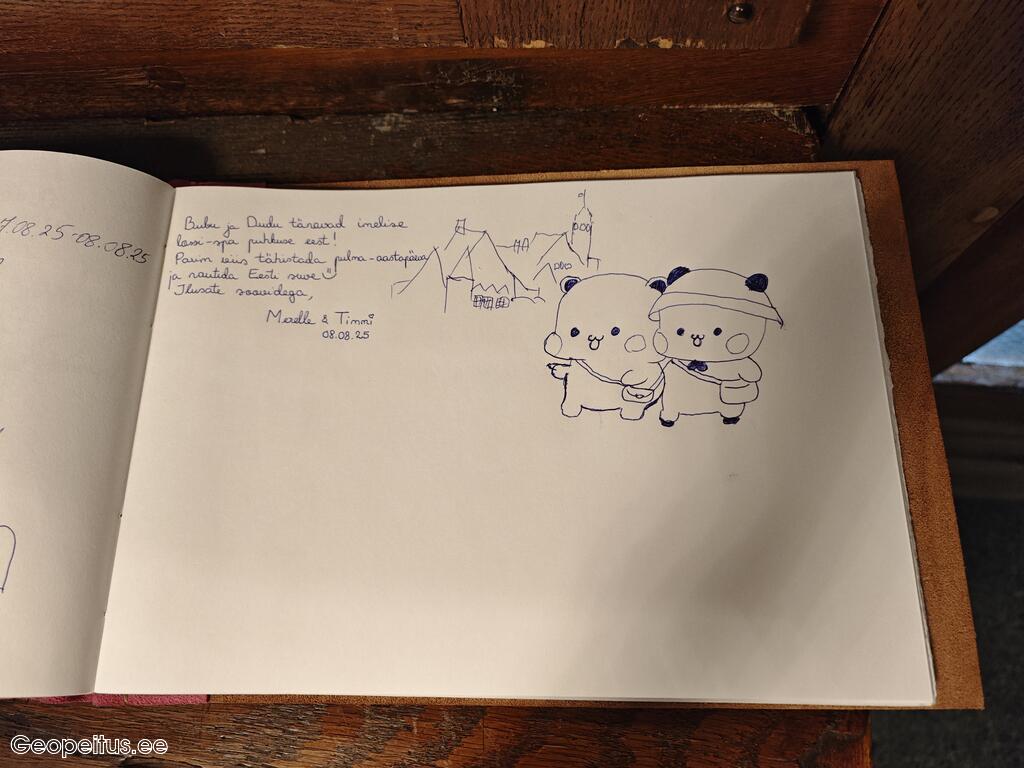 7.08.25-08.08.25
Bubu ja Dudu tänavad imelise
lossi-spa puhkuse eest!
Parim viis tähistada pulma-aastapäeva
ja nautida Eesti suve"
Ilusate soovidega,
Merelle & Timmi
08.08.25
Geopeitus.ee